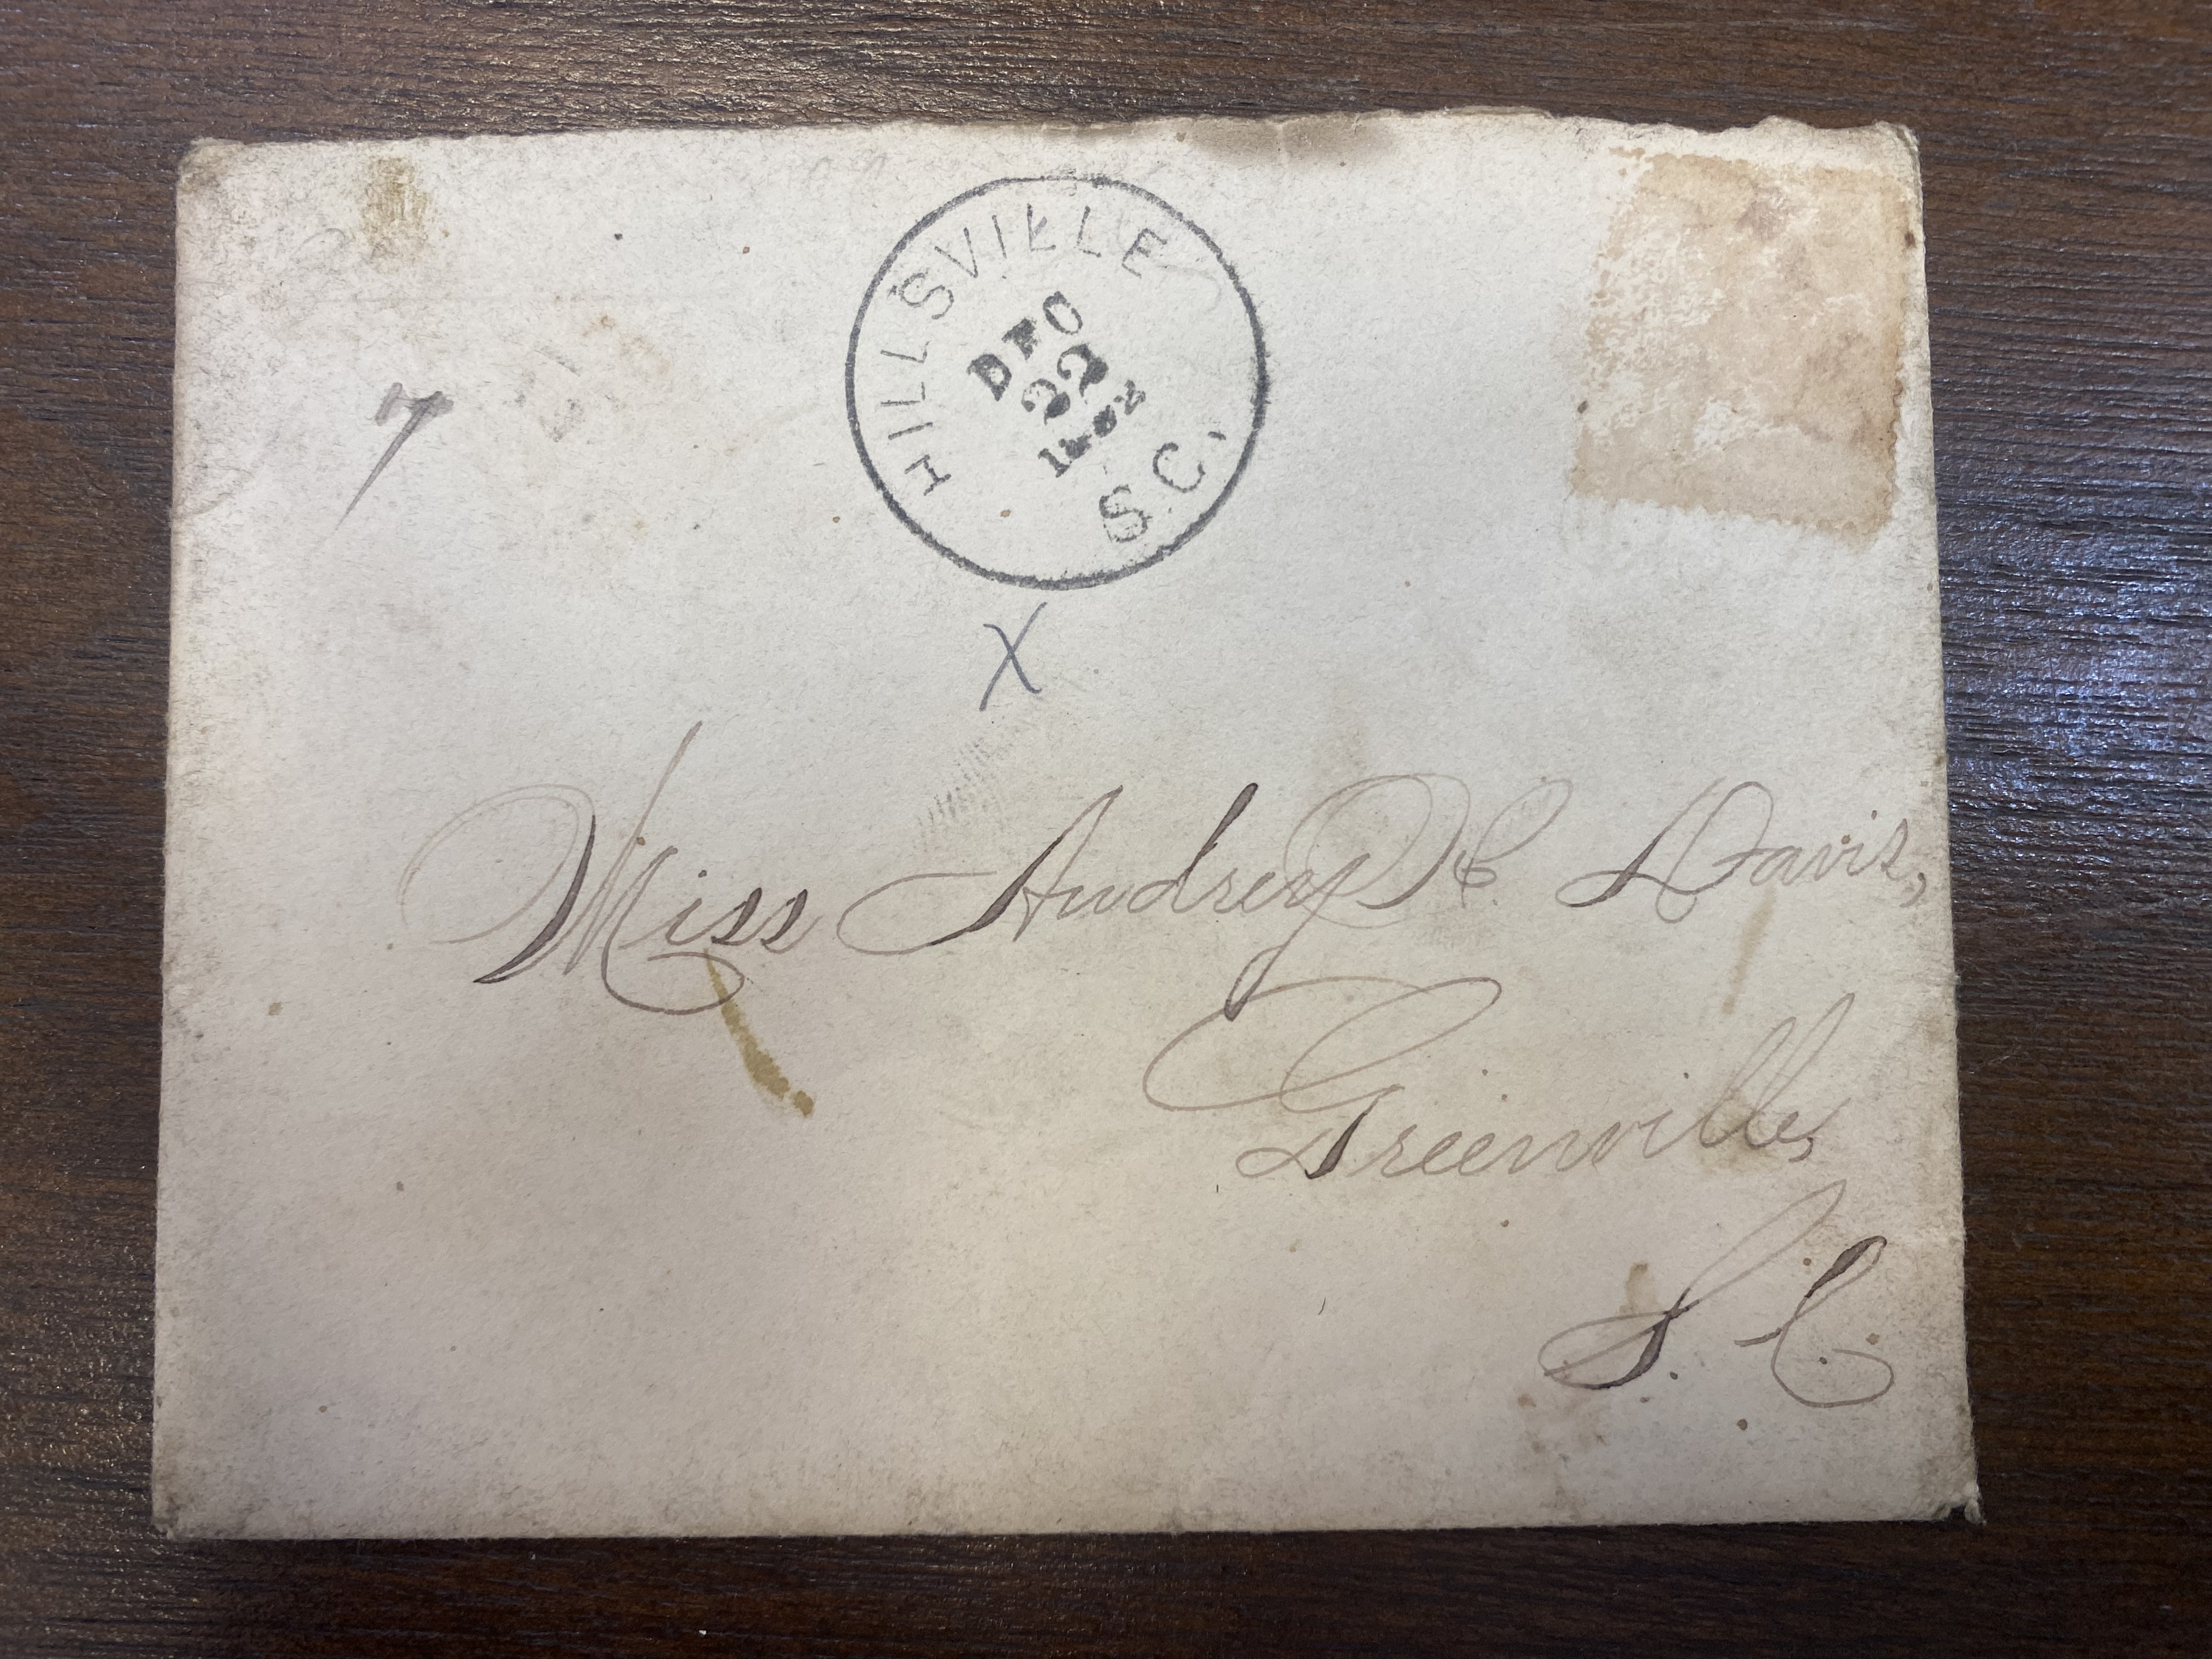 HILLSVILLE
DEC
22
S.C.
7
X
Miss Audrey H. Davis,
Greenville,
S. C.